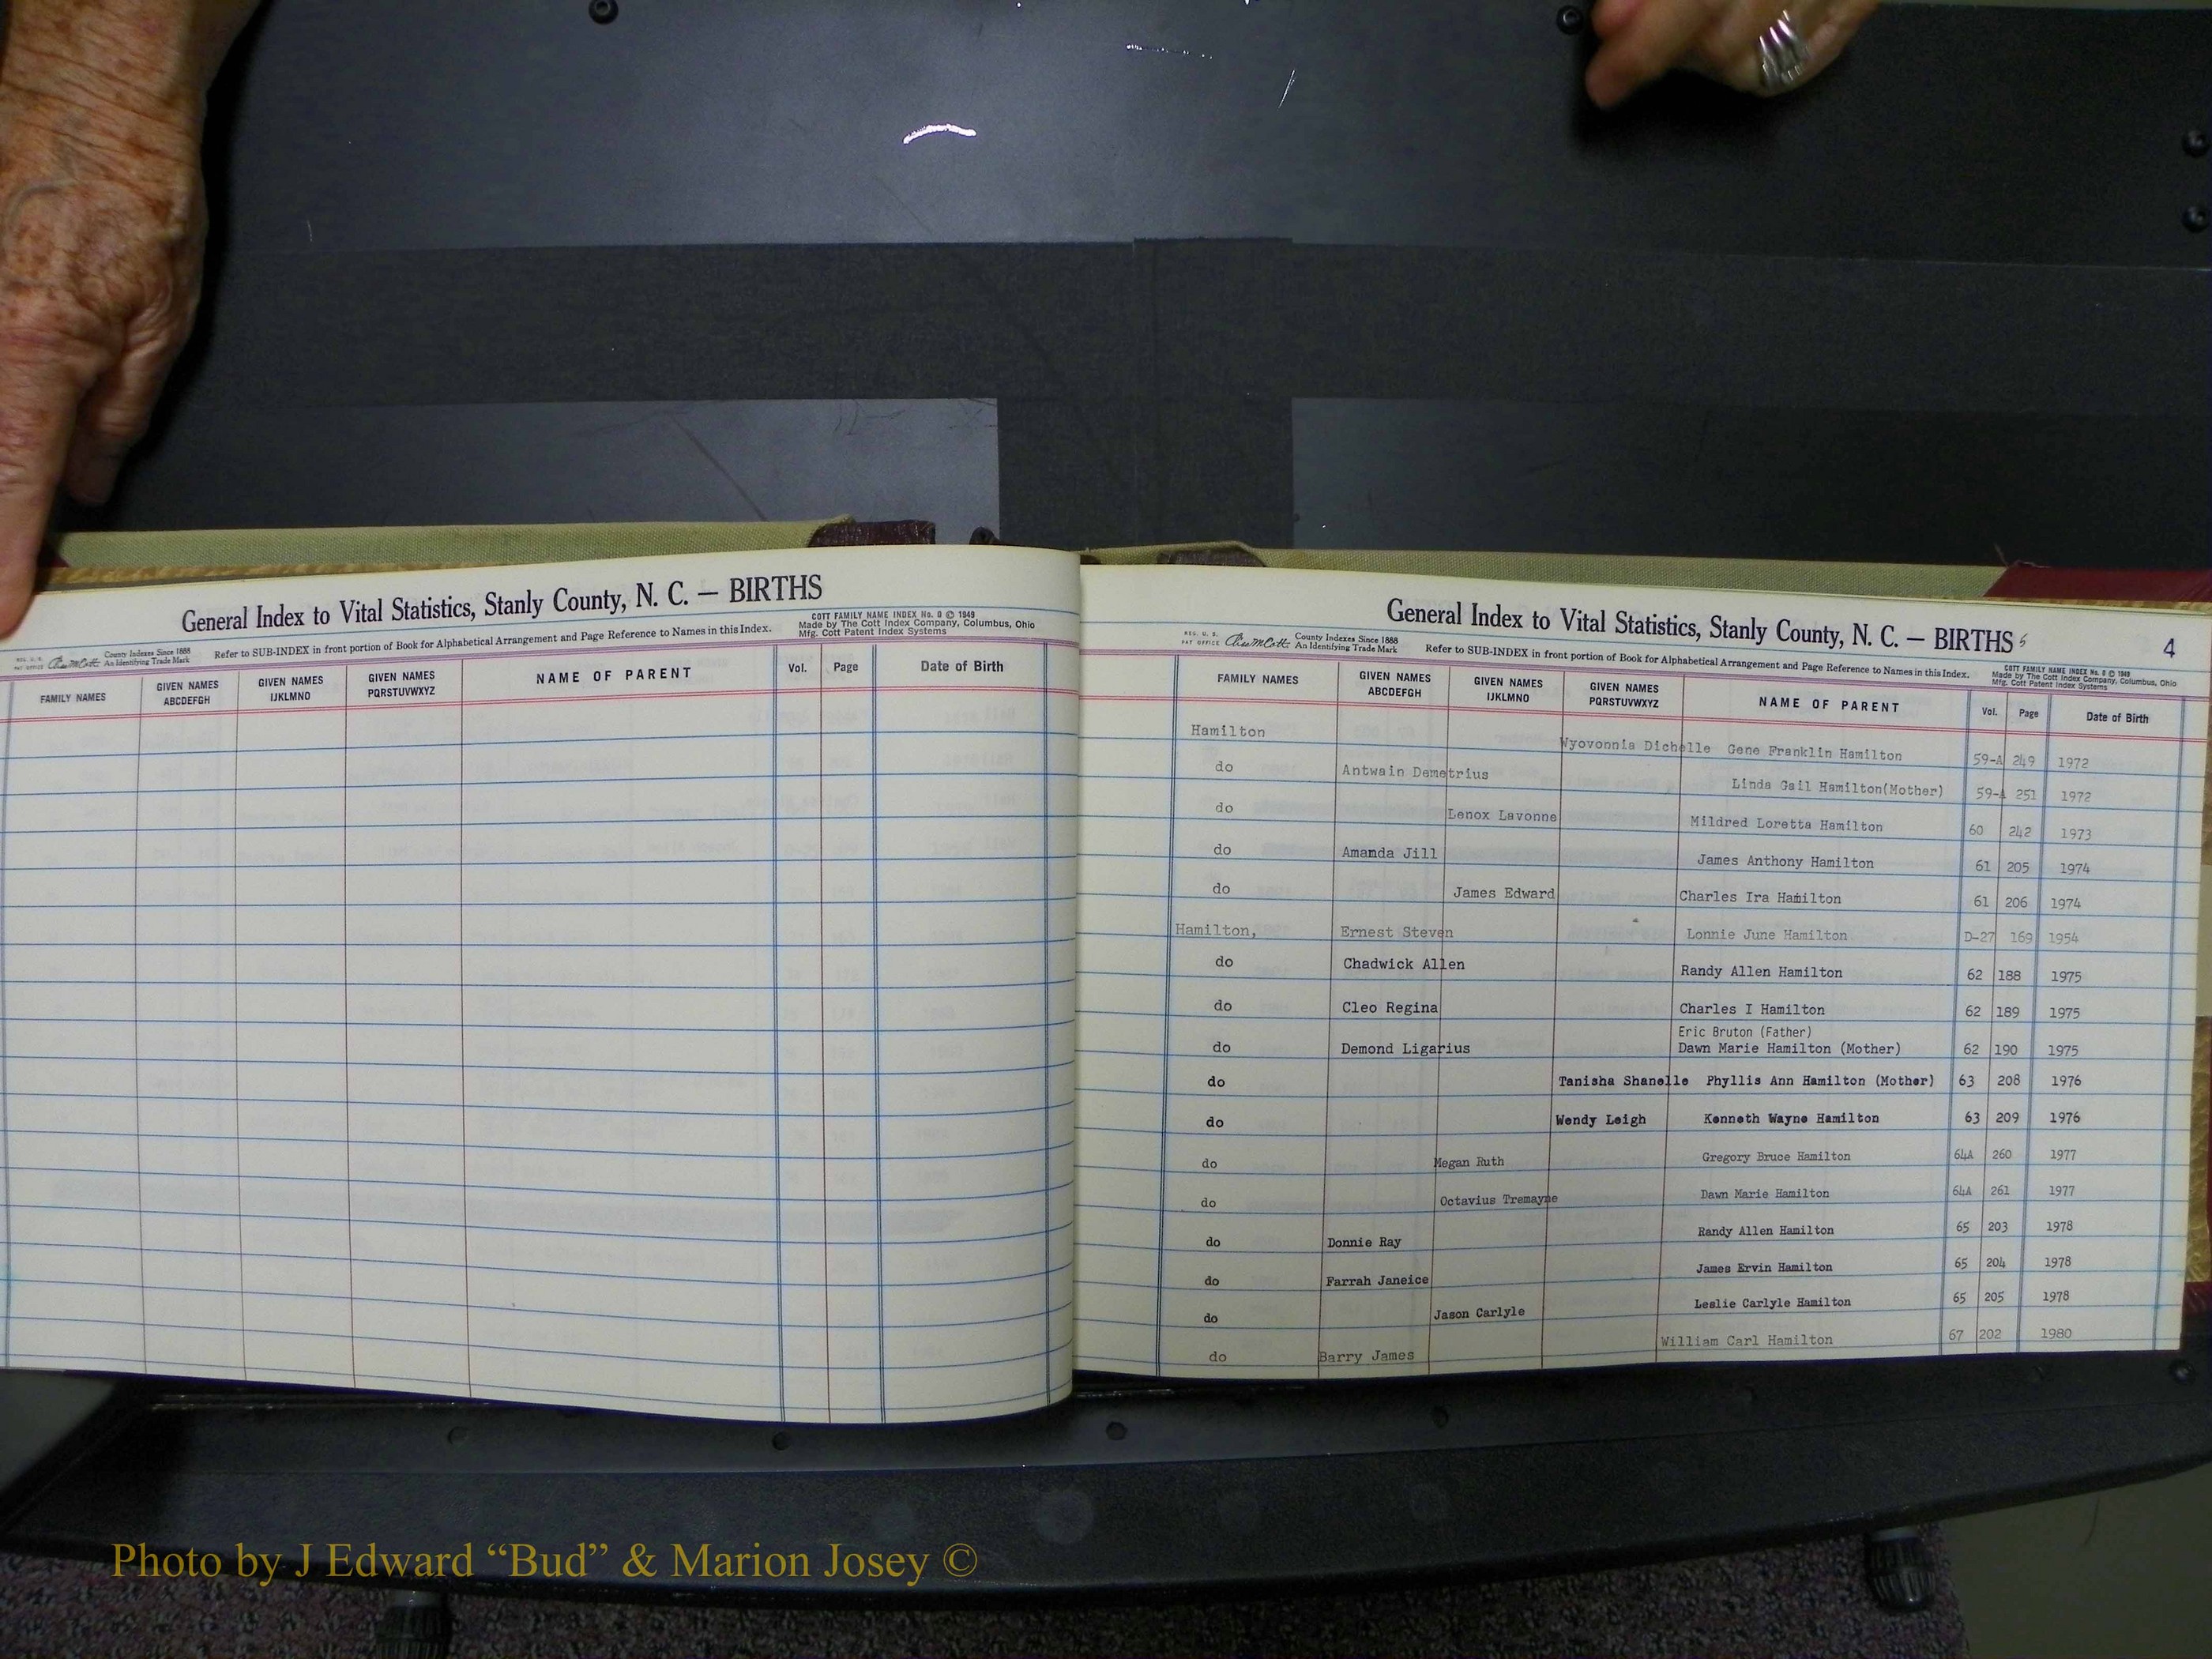 General Index to Vital Statistics, Stanly County, N. C. — BIRTHS
COTT FAMILY NAME INDEX No. 0 © 1949
Made by The Cott Index Company, Columbus, Ohio
Mfg. Cott Patent Index Systems
REG. U. S. PAT OFFICE County Indexes Since 1888 An Identifying Trade Mark
Refer to SUB-INDEX in front portion of Book for Alphabetical Arrangement and Page Reference to Names in this Index.
FAMILY NAMES GIVEN NAMES ABCDEFGH GIVEN NAMES IJKLMNO GIVEN NAMES PQRSTUVWXYZ NAME OF PARENT Vol. Page Date of Birth
General Index to Vital Statistics, Stanly County, N. C. — BIRTHS
4
REG. U. S. PAT OFFICE County Indexes Since 1888 An Identifying Trade Mark
Refer to SUB-INDEX in front portion of Book for Alphabetical Arrangement and Page Reference to Names in this Index.
COTT FAMILY NAME INDEX No. 0 © 1949
Made by The Cott Index Company, Columbus, Ohio
Mfg. Cott Patent Index Systems
FAMILY NAMES GIVEN NAMES ABCDEFGH GIVEN NAMES IJKLMNO GIVEN NAMES PQRSTUVWXYZ NAME OF PARENT Vol. Page Date of Birth
Hamilton Wyovonnia Dichelle Gene Franklin Hamilton 59-A 249 1972
do Antwain Demetrius Linda Gail Hamilton(Mother) 59-A 251 1972
do Lenox Lavonne Mildred Loretta Hamilton 60 242 1973
do Amanda Jill James Anthony Hamilton 61 205 1974
do James Edward Charles Ira Hamilton 61 206 1974
Hamilton, Ernest Steven Lonnie June Hamilton D-27 169 1954
do Chadwick Allen Randy Allen Hamilton 62 188 1975
do Cleo Regina Charles I Hamilton 62 189 1975
Eric Bruton (Father)
do Demond Ligarius Dawn Marie Hamilton (Mother) 62 190 1975
do Tanisha Shanelle Phyllis Ann Hamilton (Mother) 63 208 1976
do Wendy Leigh Kenneth Wayne Hamilton 63 209 1976
do Megan Ruth Gregory Bruce Hamilton 64A 260 1977
do Octavius Tremayne Dawn Marie Hamilton 64A 261 1977
do Donnie Ray Randy Allen Hamilton 65 203 1978
do Farrah Janeice James Ervin Hamilton 65 204 1978
do Jason Carlyle Leslie Carlyle Hamilton 65 205 1978
do Barry James William Carl Hamilton 67 202 1980
Photo by J Edward “Bud” & Marion Josey ©